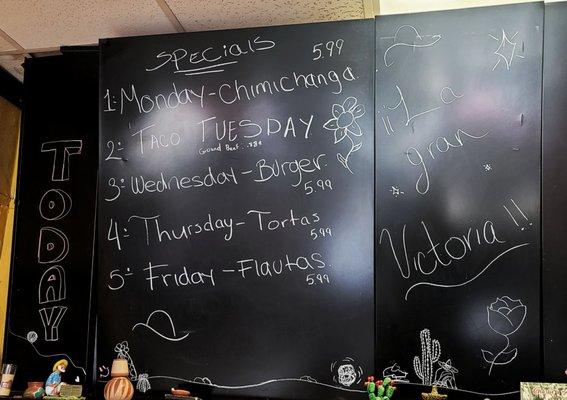 TODAY
SPECIALS
5.99
1: Monday - Chimichanga
2: TACO TUESDAY
Ground Beef..
3: Wednesday - Burger
5.99
4: Thursday - Tortas
5.99
5: Friday - Flautas
5.99
¡¡La
gran
Victoria!!